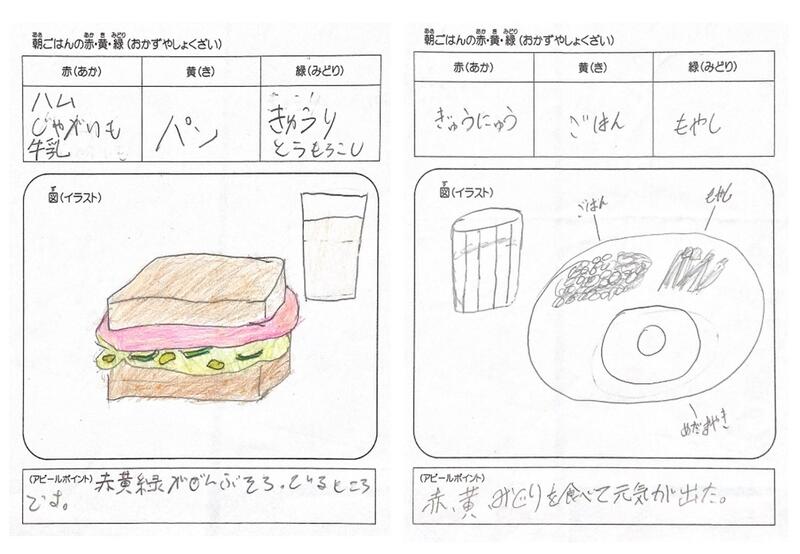 朝ごはんの赤・黄・緑(おかずやしょくざい)
赤(あか)
黄(き)
緑(みどり)
ハム
じゃがいも
牛乳
パン
きゅうり
とうもろこし
図(イラスト)
(アピールポイント)
赤黄緑がぜんぶそろっているところ
です。
朝ごはんの赤・黄・緑(おかずやしょくざい)
赤(あか)
黄(き)
緑(みどり)
ぎゅうにゅう
ごはん
もやし
図(イラスト)
ごはん
もやし
めだまやき
(アピールポイント)
赤、黄、みどりを食べて元気が出た。